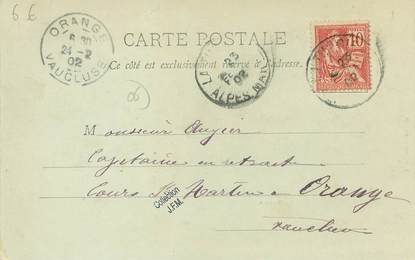 6.6
ORANGE
6 30
24-2
02
VAUCLUSE
CARTE POSTALE
Ce côté est exclusivement réservé à l'adresse.
23
02
ALPES MAR
10
Monsieur Augier
Capitaine en retraite
Cours St Martin à Orange
Vaucluse
Collection
J.F.M.